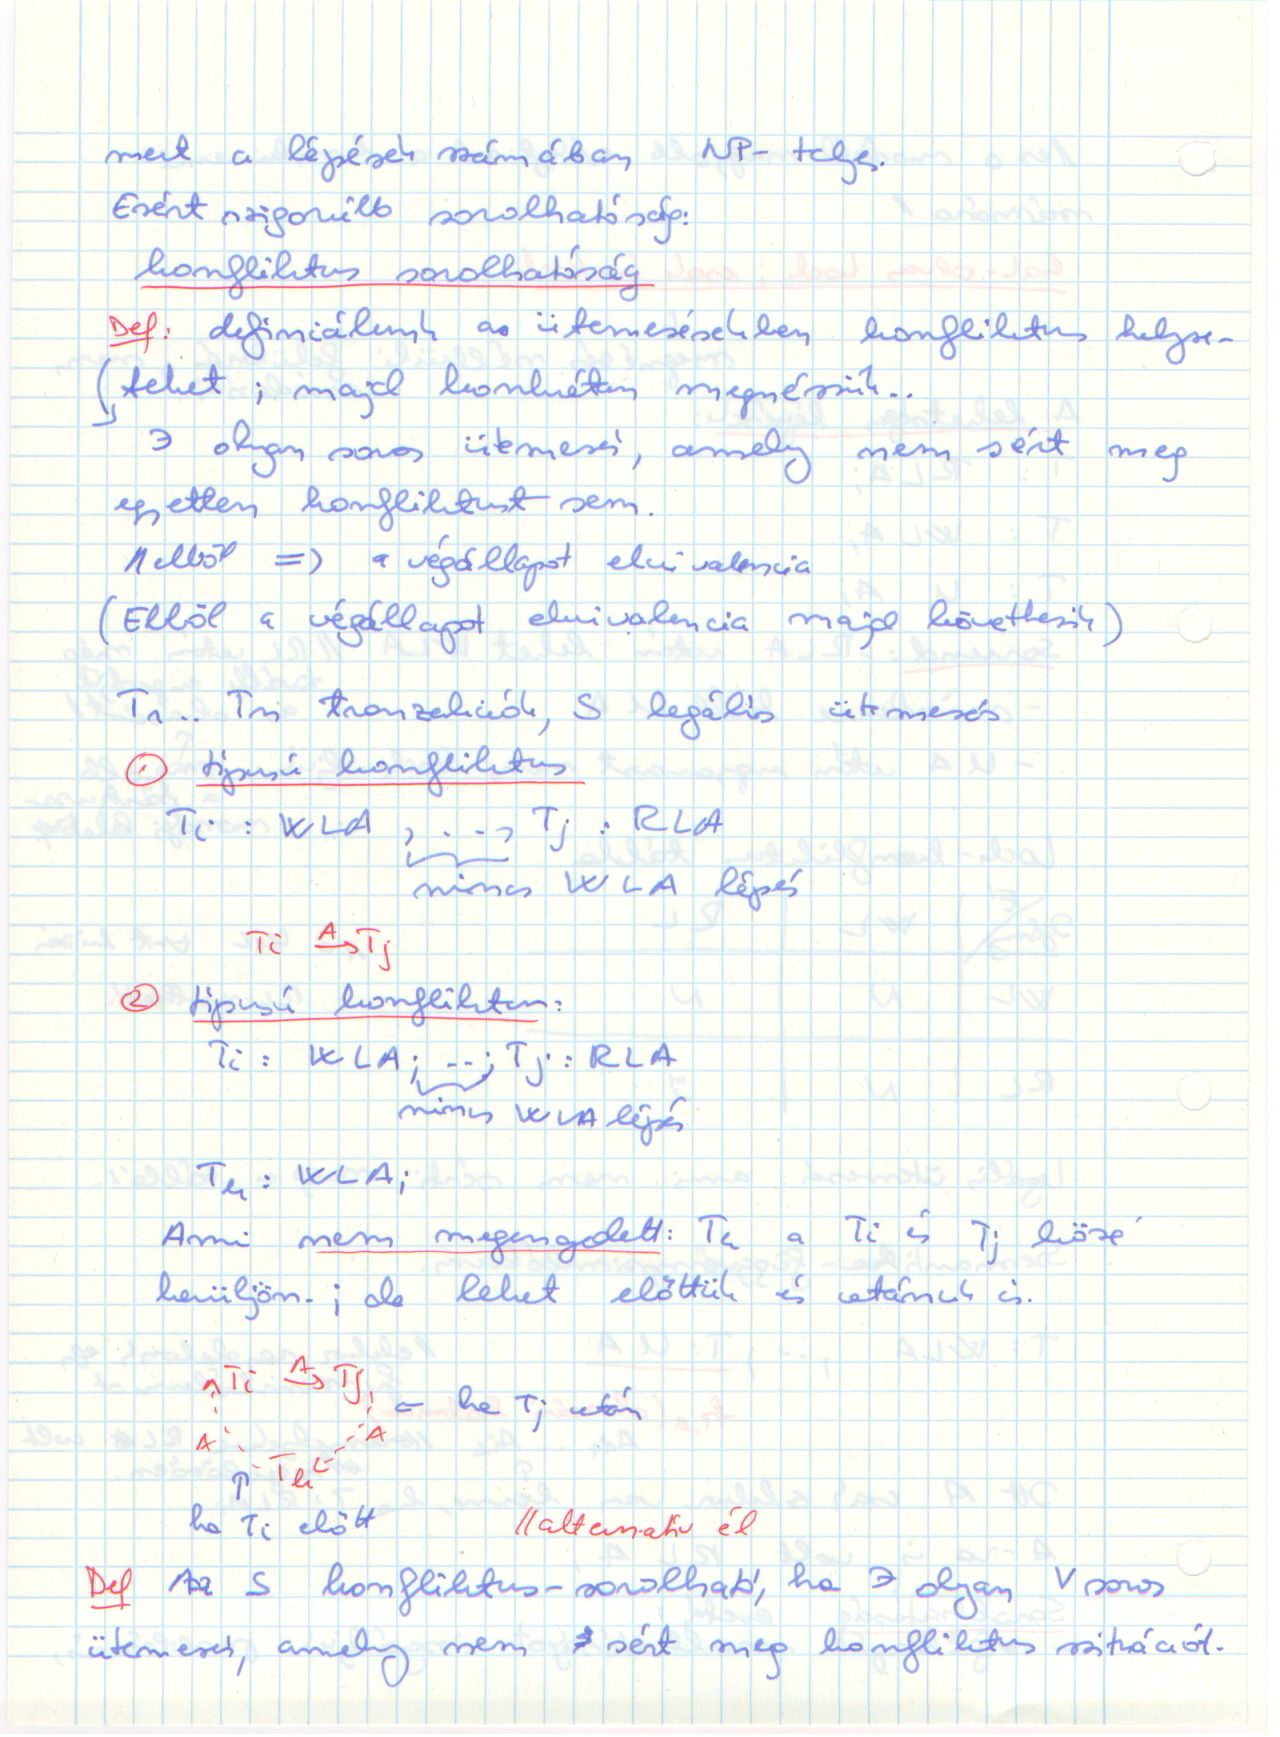 mert a lépések számában NP-telj.
Ezért szigorúbb sorolhatóság:
konfliktus sorolhatóság
Def: definiálunk az ütemezésekben konfliktus helyze-
teket ; majd konkrétan megnézzük..
∃ olyan soros ütemezés, amely nem sért meg
egyetlen konfliktust sem.
=> a végállapot ekvivalencia
(Ebből a végállapot ekvivalencia majd következik)
T1 .. Tn tranzakciók, S legális ütemezés
① típusú konfliktus
Ti : WLA , . . , Tj : RLA
nincs WLA lépés
Ti A→ Tj
② típusú konfliktus:
Ti : WLA; ..; Tj : RLA
nincs WLA lépés
Tk : WLA;
Ami nem megengedett: Tk a Ti és Tj közé
kerüljön. ; de lehet előttük és utánuk is.
Ti A→ Tj
← ha Tj után
A A
Tk
↑
ha Ti előtt //alternatív él
Def Az S konfliktus-sorolható, ha ∃ olyan V soros
ütemezés, amely nem sért meg konfliktus szituációt.